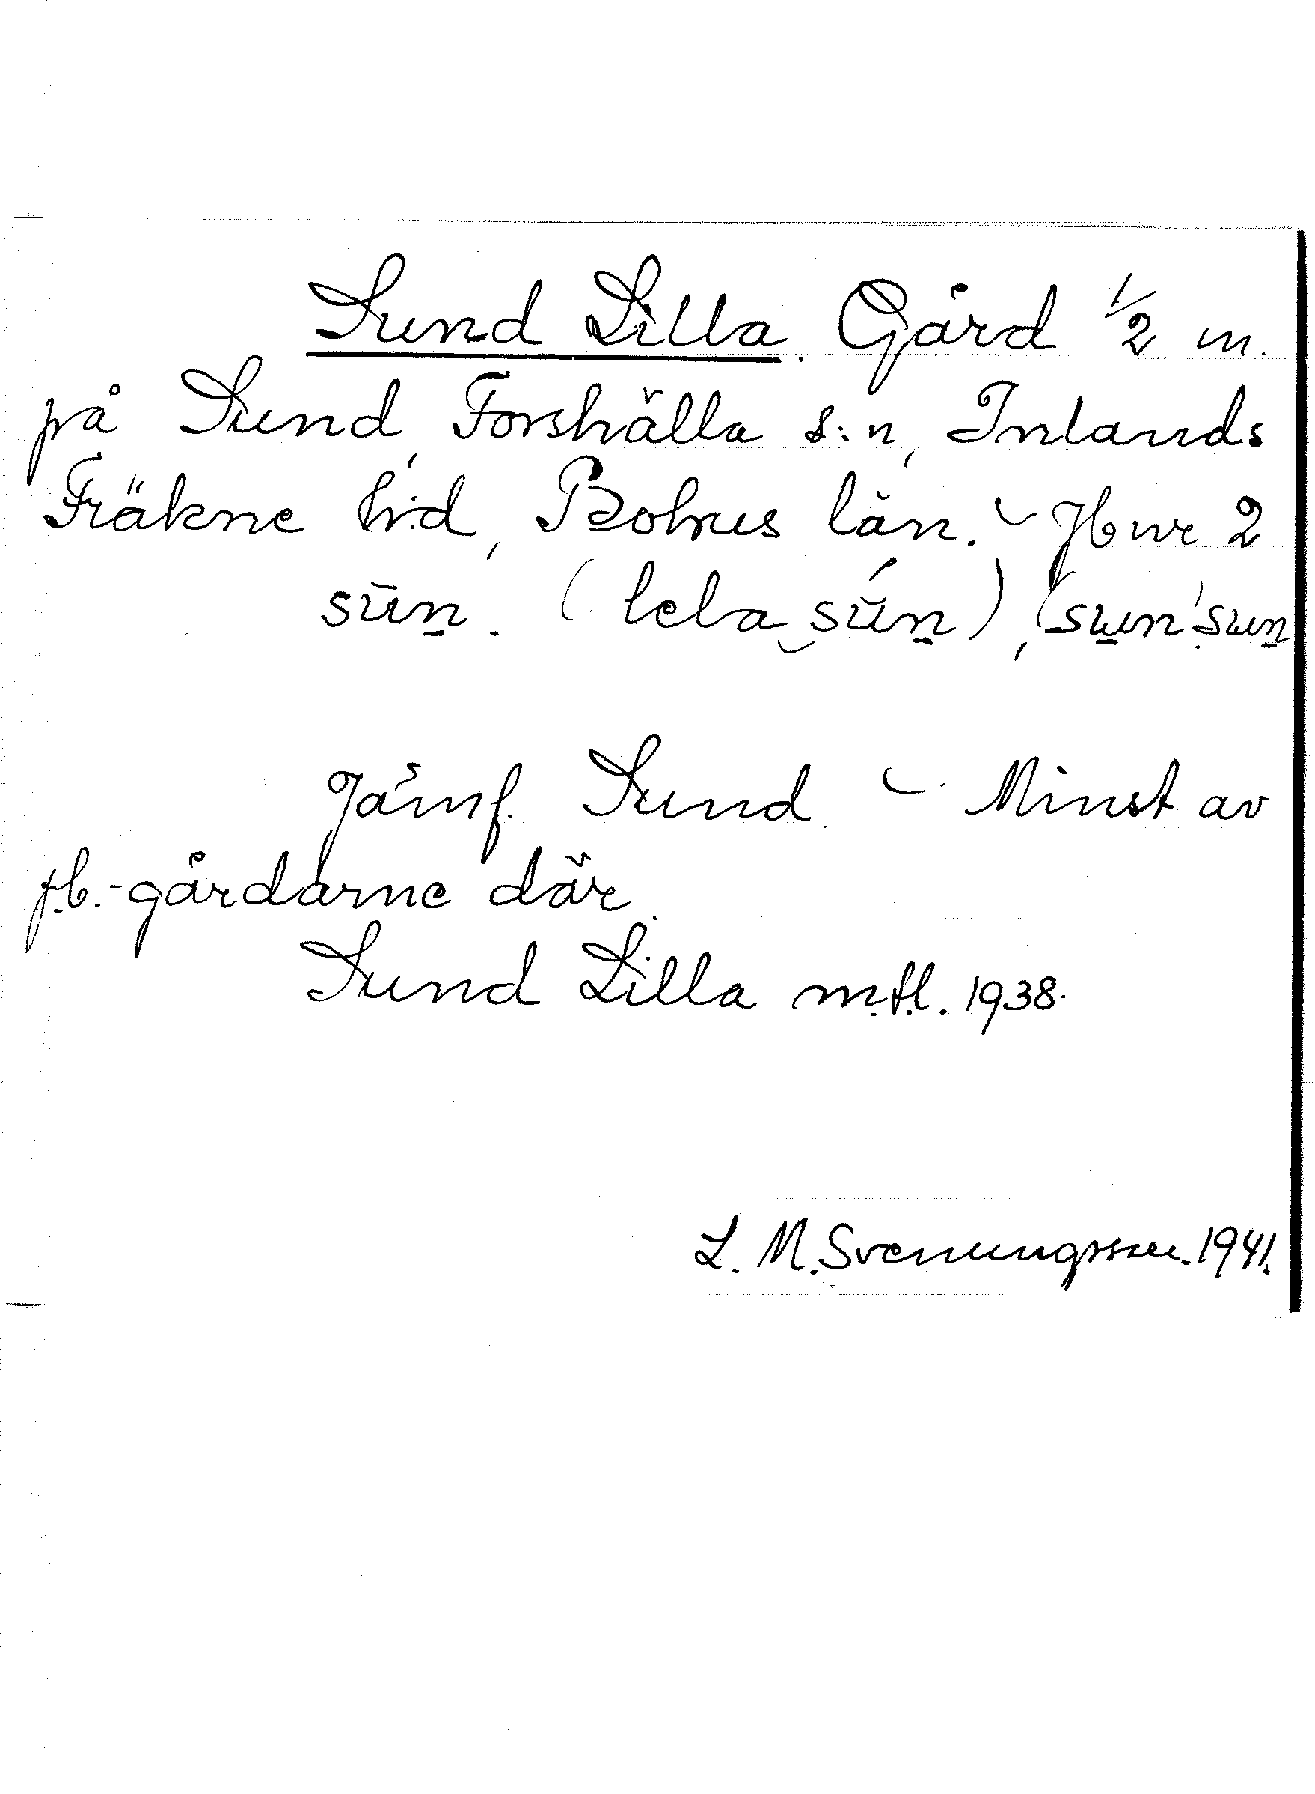 Sund Lilla. Gård 1/2 m.
på Sund, Forshälla s:n, Inlands
Fräkne h:d, Bohus län. - Jb nr 2
sūn. (lela sún), (sun'sun
Jämf. Sund - Minst av
jb.-gårdarne där.
Sund Lilla m.t.l. 1938.
L. M. Svenungsson. 1941.